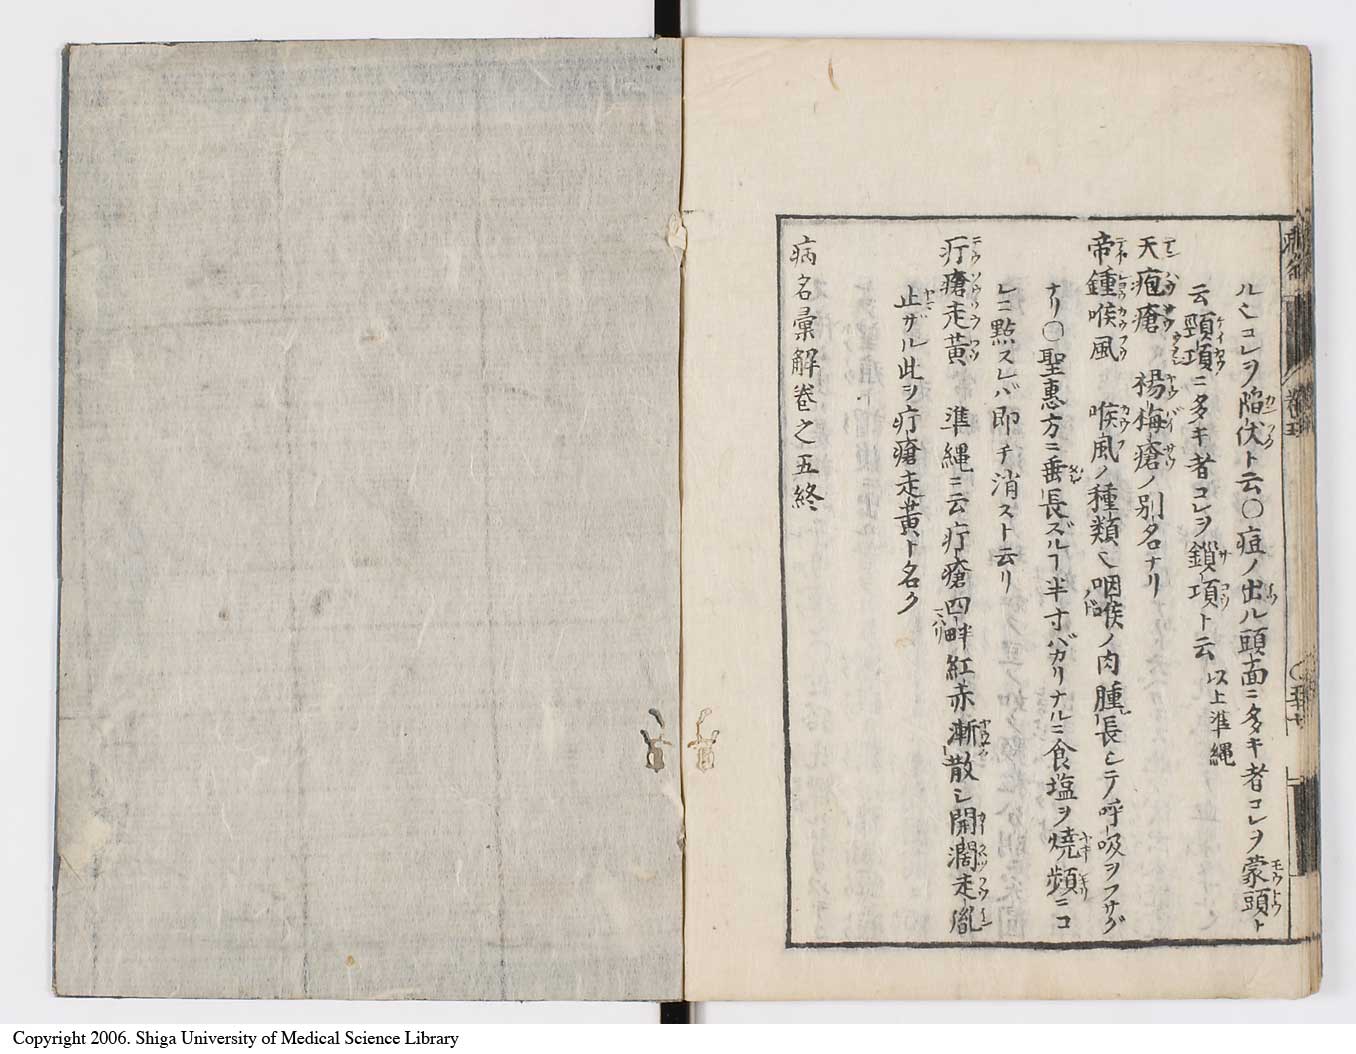 ルヿコレヲ陥伏ト云〇疽ノ出ル頭面ニ多キ者コレヲ蒙頭ト
云頸項ニ多キ者コレヲ鎖項ト云以上準縄
天疱瘡 楊梅瘡ノ別名ナリ
帝鍾喉風 喉風ノ種類也咽喉ノ肉腫長シテ呼吸ヲフサグ
ナリ〇聖惠方ニ垂長ズルヿ半寸バカリナルニ食塩ヲ燒頻ニコ
レニ點スレバ即チ消スト云リ
疔瘡走黃 準縄ニ云疔瘡四畔紅赤漸散シ開濶走胤
止ザル此ヲ疔瘡走黃ト名ク
病名彙解卷之五終
Copyright 2006. Shiga University of Medical Science Library